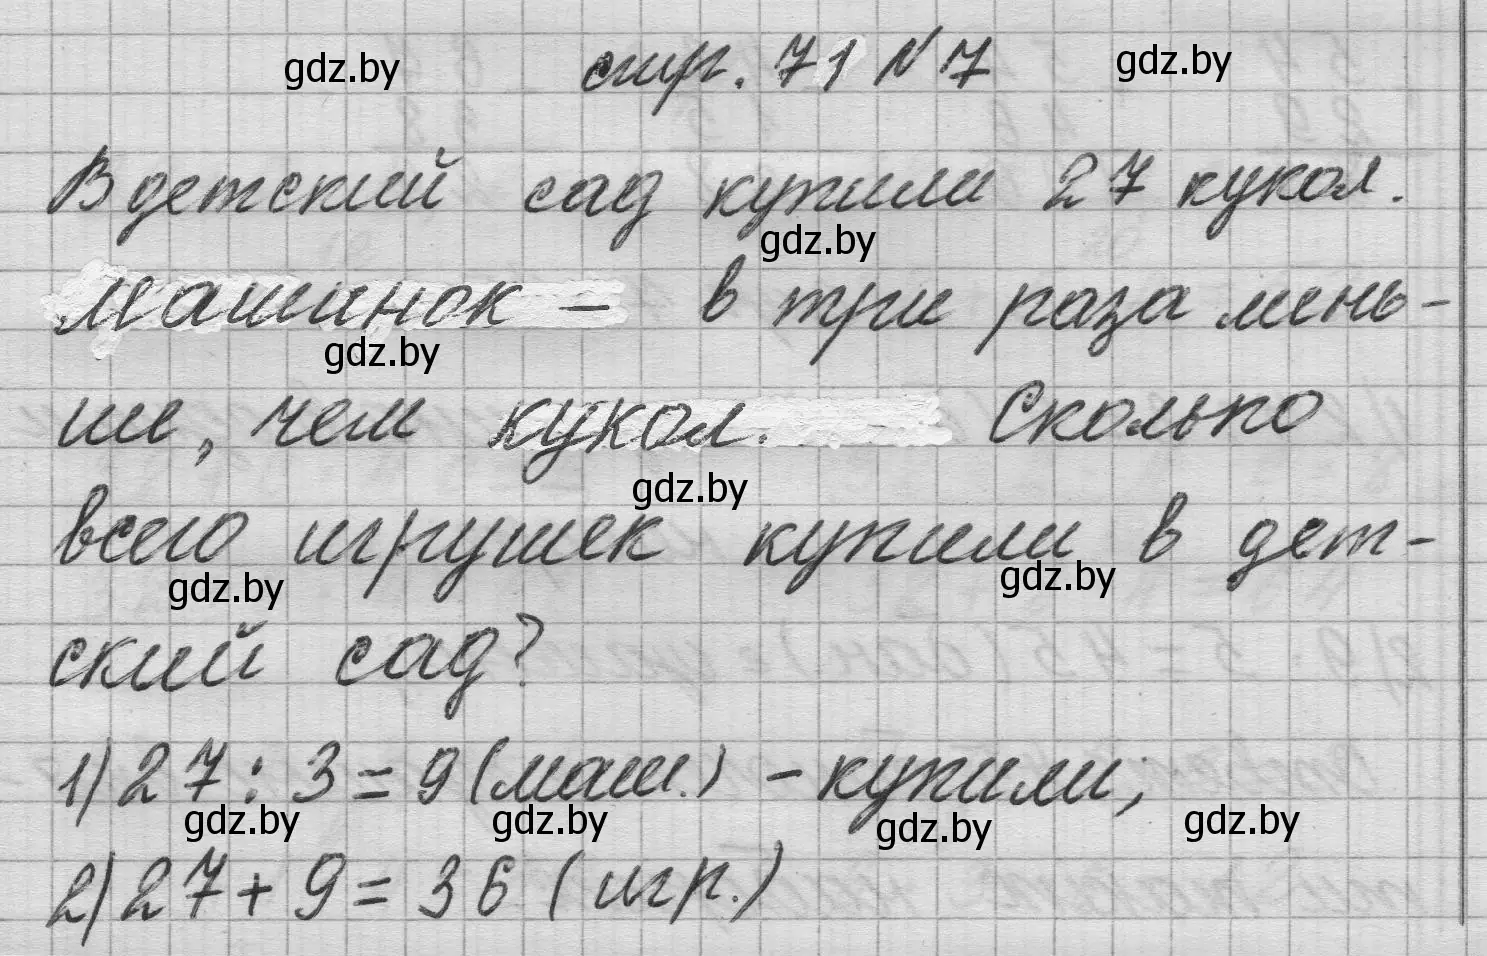 gdz.by стр. 71 №7 gdz.by
В детский сад купили 27 кукол.
gdz.by
Машинок – в три раза мень-
gdz.by
ше, чем кукол. Сколько
gdz.by
всего игрушек купили в дет-
gdz.by gdz.by
ский сад?
1) 27 : 3 = 9 (маш.) – купили;
gdz.by gdz.by gdz.by gdz.by
2) 27 + 9 = 36 (игр.)